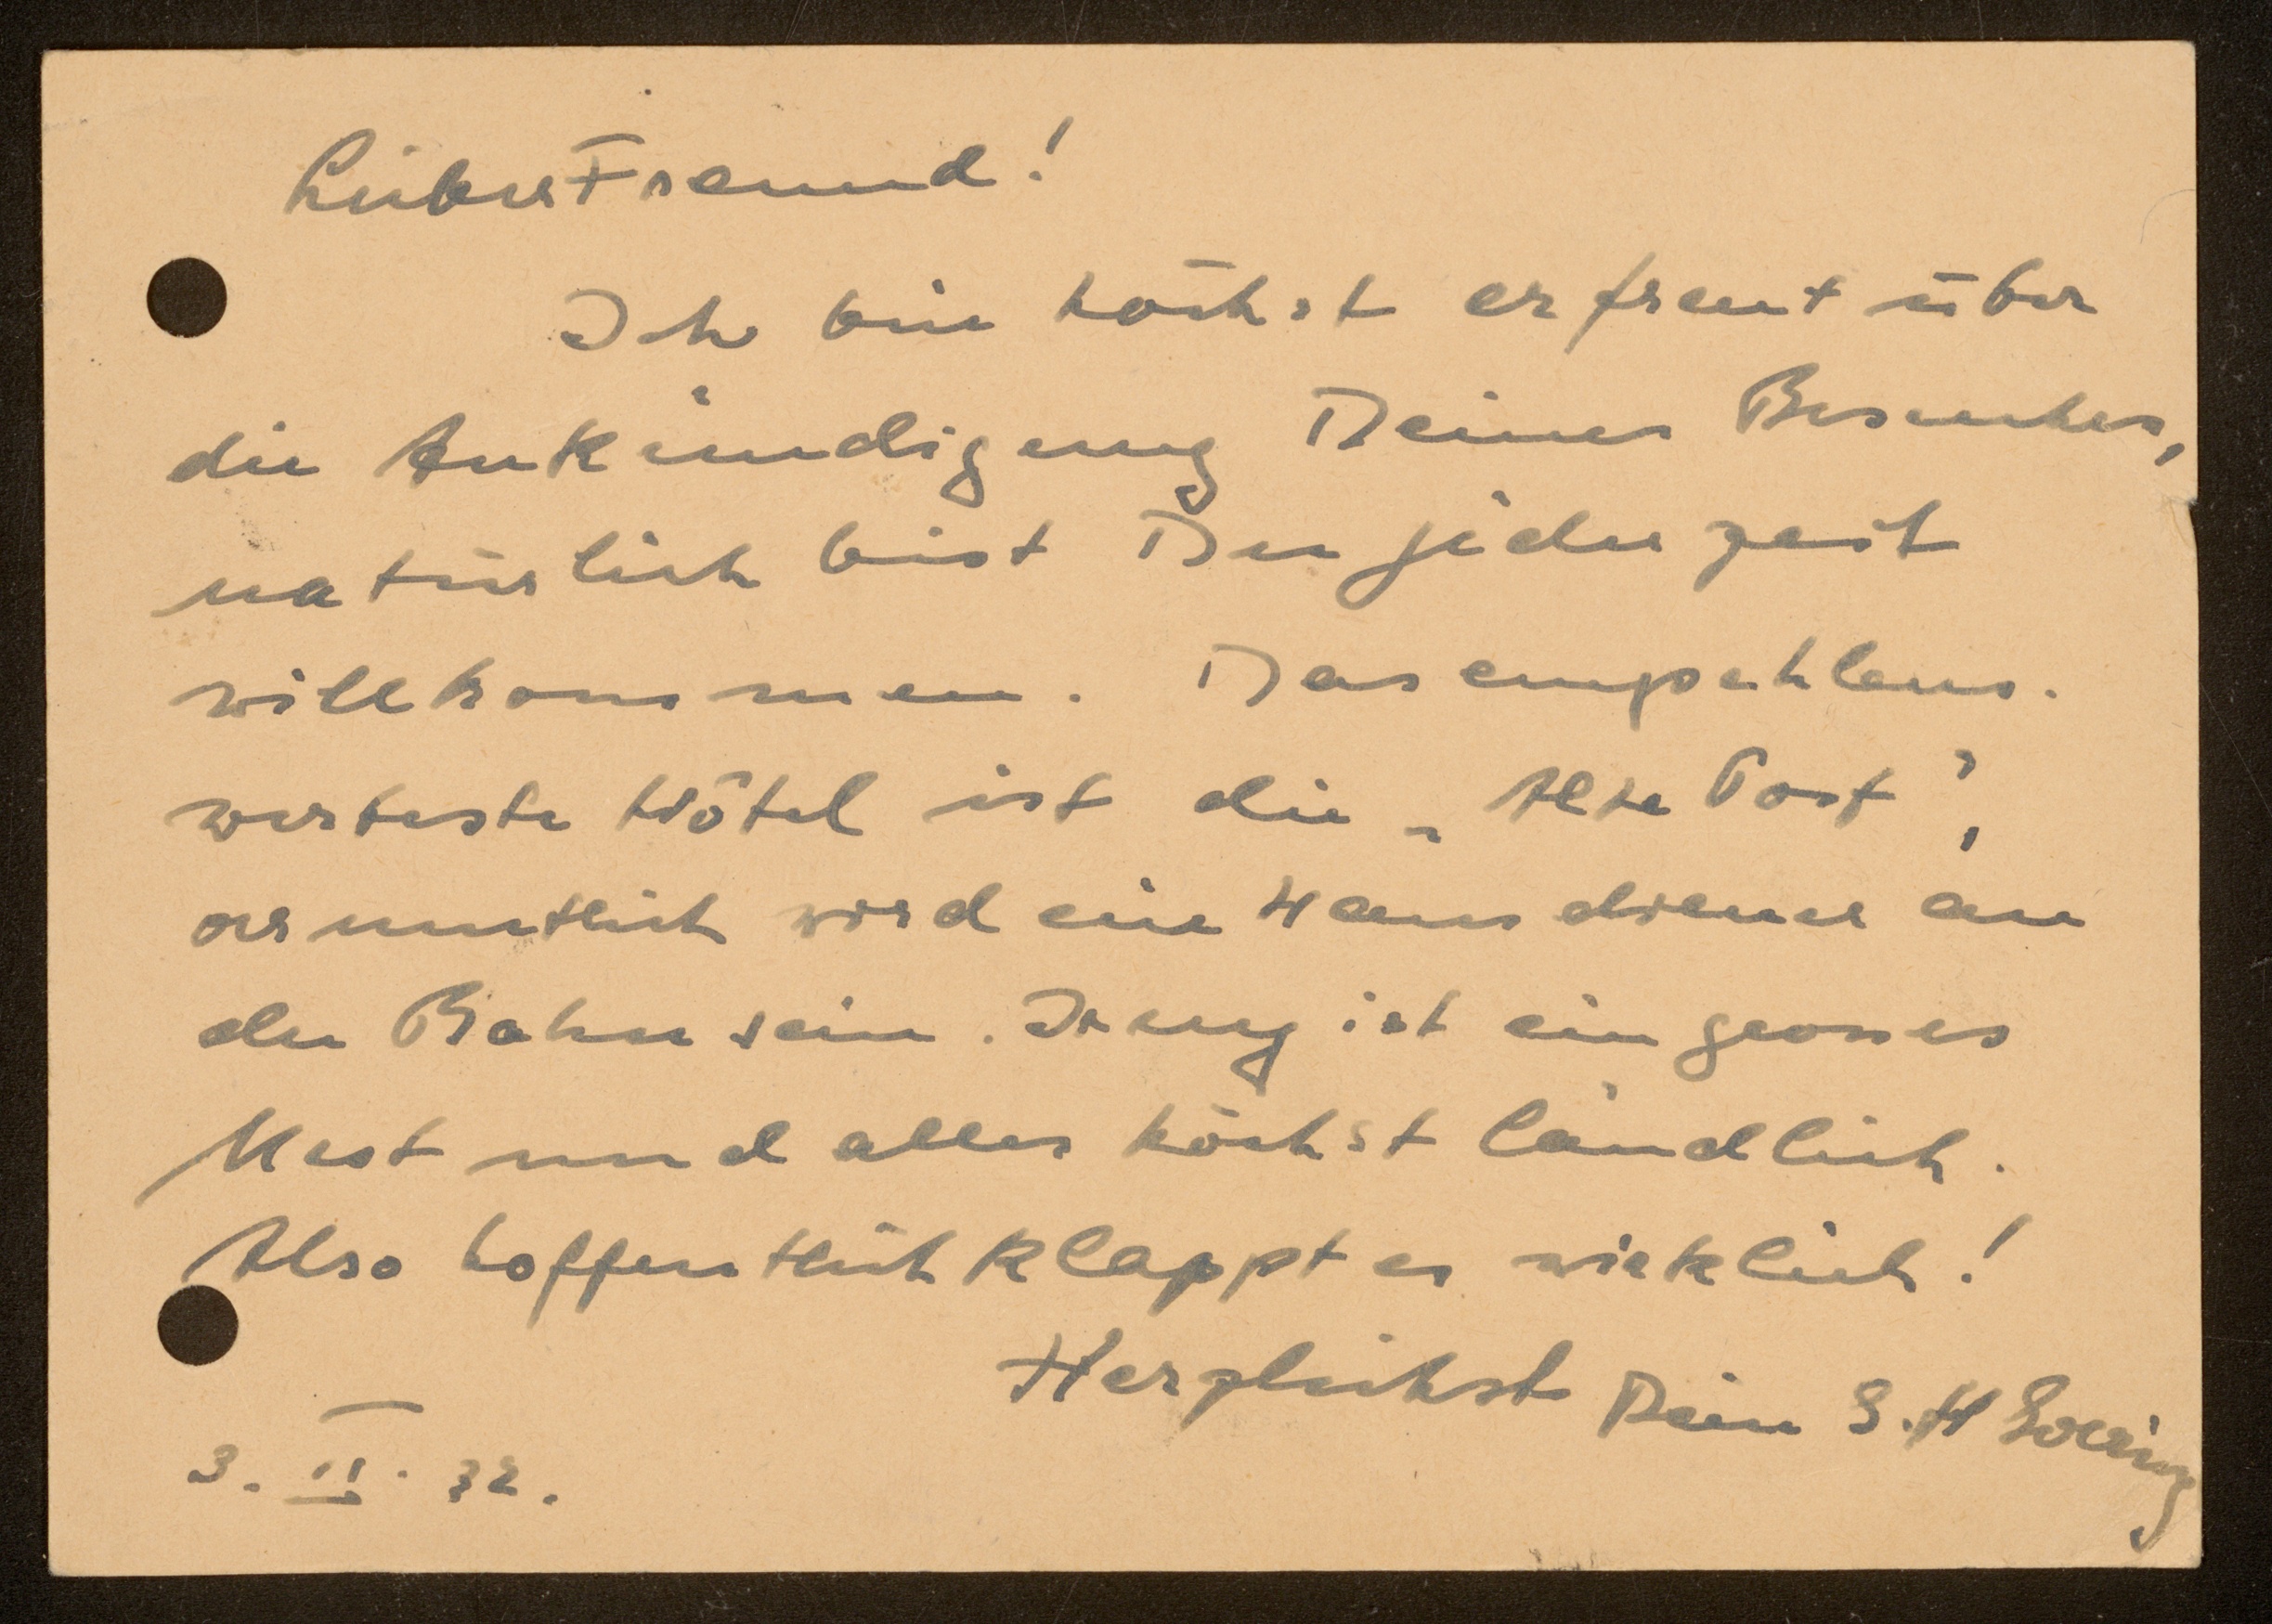 Lieber Freund!
Ich bin höchst erfreut über
die Ankündigung Deines Besuches,
natürlich bist Du jederzeit
willkommen. Das empfehlens-
werteste Hôtel ist die „Alte Post",
vermutlich wird ein Hausdiener an
der Bahn sein. ist ein grosses
Nest und alles höchst ländlich.
Also hoffentlich klappt es wirklich!
Herzlichst Dein
3. II. 32.